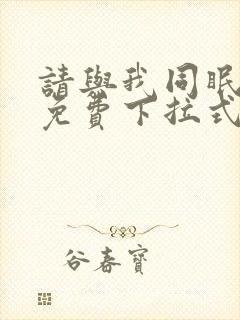 請與我同眠
免費下拉式
谷春寶